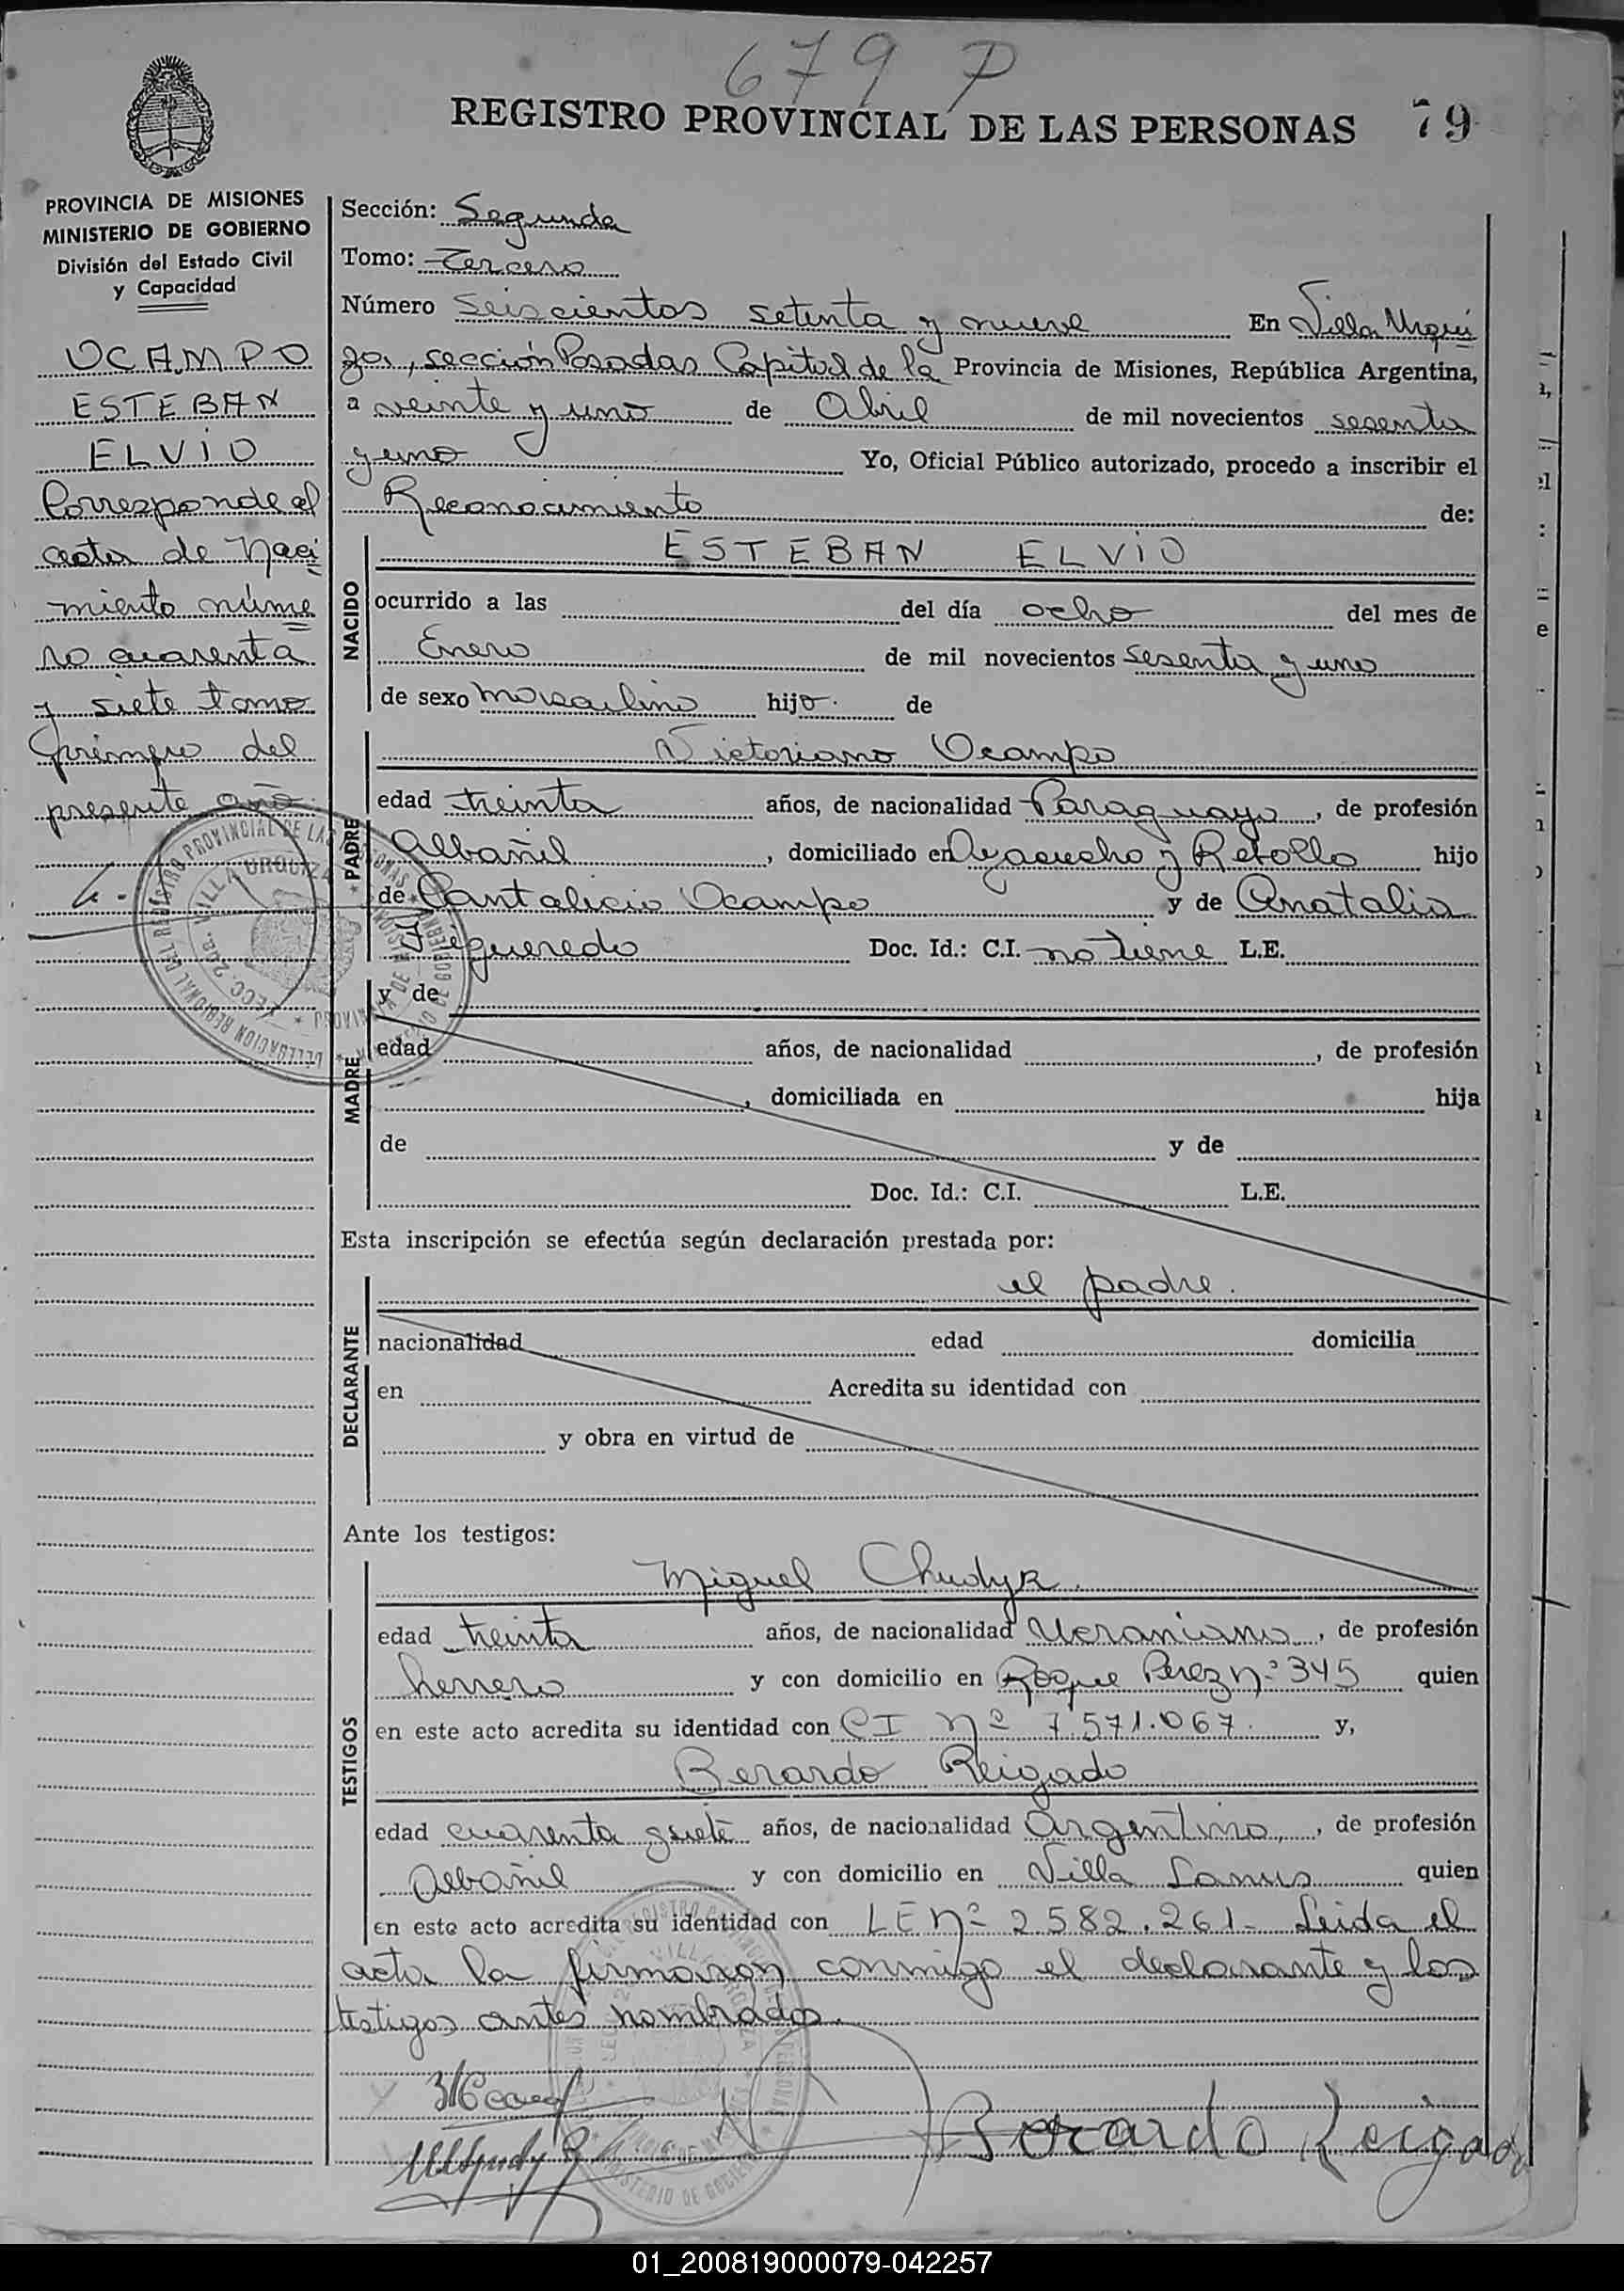 679 P
REGISTRO PROVINCIAL DE LAS PERSONAS 79
PROVINCIA DE MISIONES
MINISTERIO DE GOBIERNO
División del Estado Civil
y Capacidad
OCAMPO
ESTEBAN
ELVIO
Corresponde al
acta de Naci
miento núme
ro cuarenta
y siete tomo
primero del
presente año
Sección: Segunda
Tomo: Tercero
Número Seiscientos setenta y nueve En Villa Urqui
za, sección Posadas Capital de la Provincia de Misiones, República Argentina,
a veinte y uno de Abril de mil novecientos sesenta
y uno Yo, Oficial Público autorizado, procedo a inscribir el
Reconocimiento de:
NACIDO
ESTEBAN ELVIO
ocurrido a las del día ocho del mes de
Enero de mil novecientos sesenta y uno
de sexo masculino hijo. de
PADRE
Victoriano Ocampo
edad treinta años, de nacionalidad Paraguayo, de profesión
Albañil, domiciliado en Ayacucho y Rebollo hijo
de Cantalicio Ocampo y de Anatalia
Figueredo Doc. Id.: C.I. no tiene L.E.
MADRE
y de
edad años, de nacionalidad , de profesión
, domiciliada en hija
de y de
Doc. Id.: C.I. L.E.
Esta inscripción se efectúa según declaración prestada por:
el padre.
DECLARANTE
nacionalidad edad domicilia
en Acredita su identidad con
y obra en virtud de
Ante los testigos:
TESTIGOS
Miguel Chudyk.
edad treinta años, de nacionalidad Ucraniano, de profesión
herrero y con domicilio en Roque Perez nº 345 quien
en este acto acredita su identidad con CI Nº 7.571.067. y,
Berardo Reigado
edad cuarenta y siete años, de nacionalidad Argentino, de profesión
Albañil y con domicilio en Villa Lanus quien
en este acto acredita su identidad con LE Nº 2582.261- Leida el
acta la firmaron conmigo el declarante y los
testigos antes nombrados.
Berardo Reigado
DELEGACION REGIONAL DEL REGISTRO PROVINCIAL DE LAS PERSONAS
SECC. 2da. VILLA URQUIZA
01_200819000079-042257